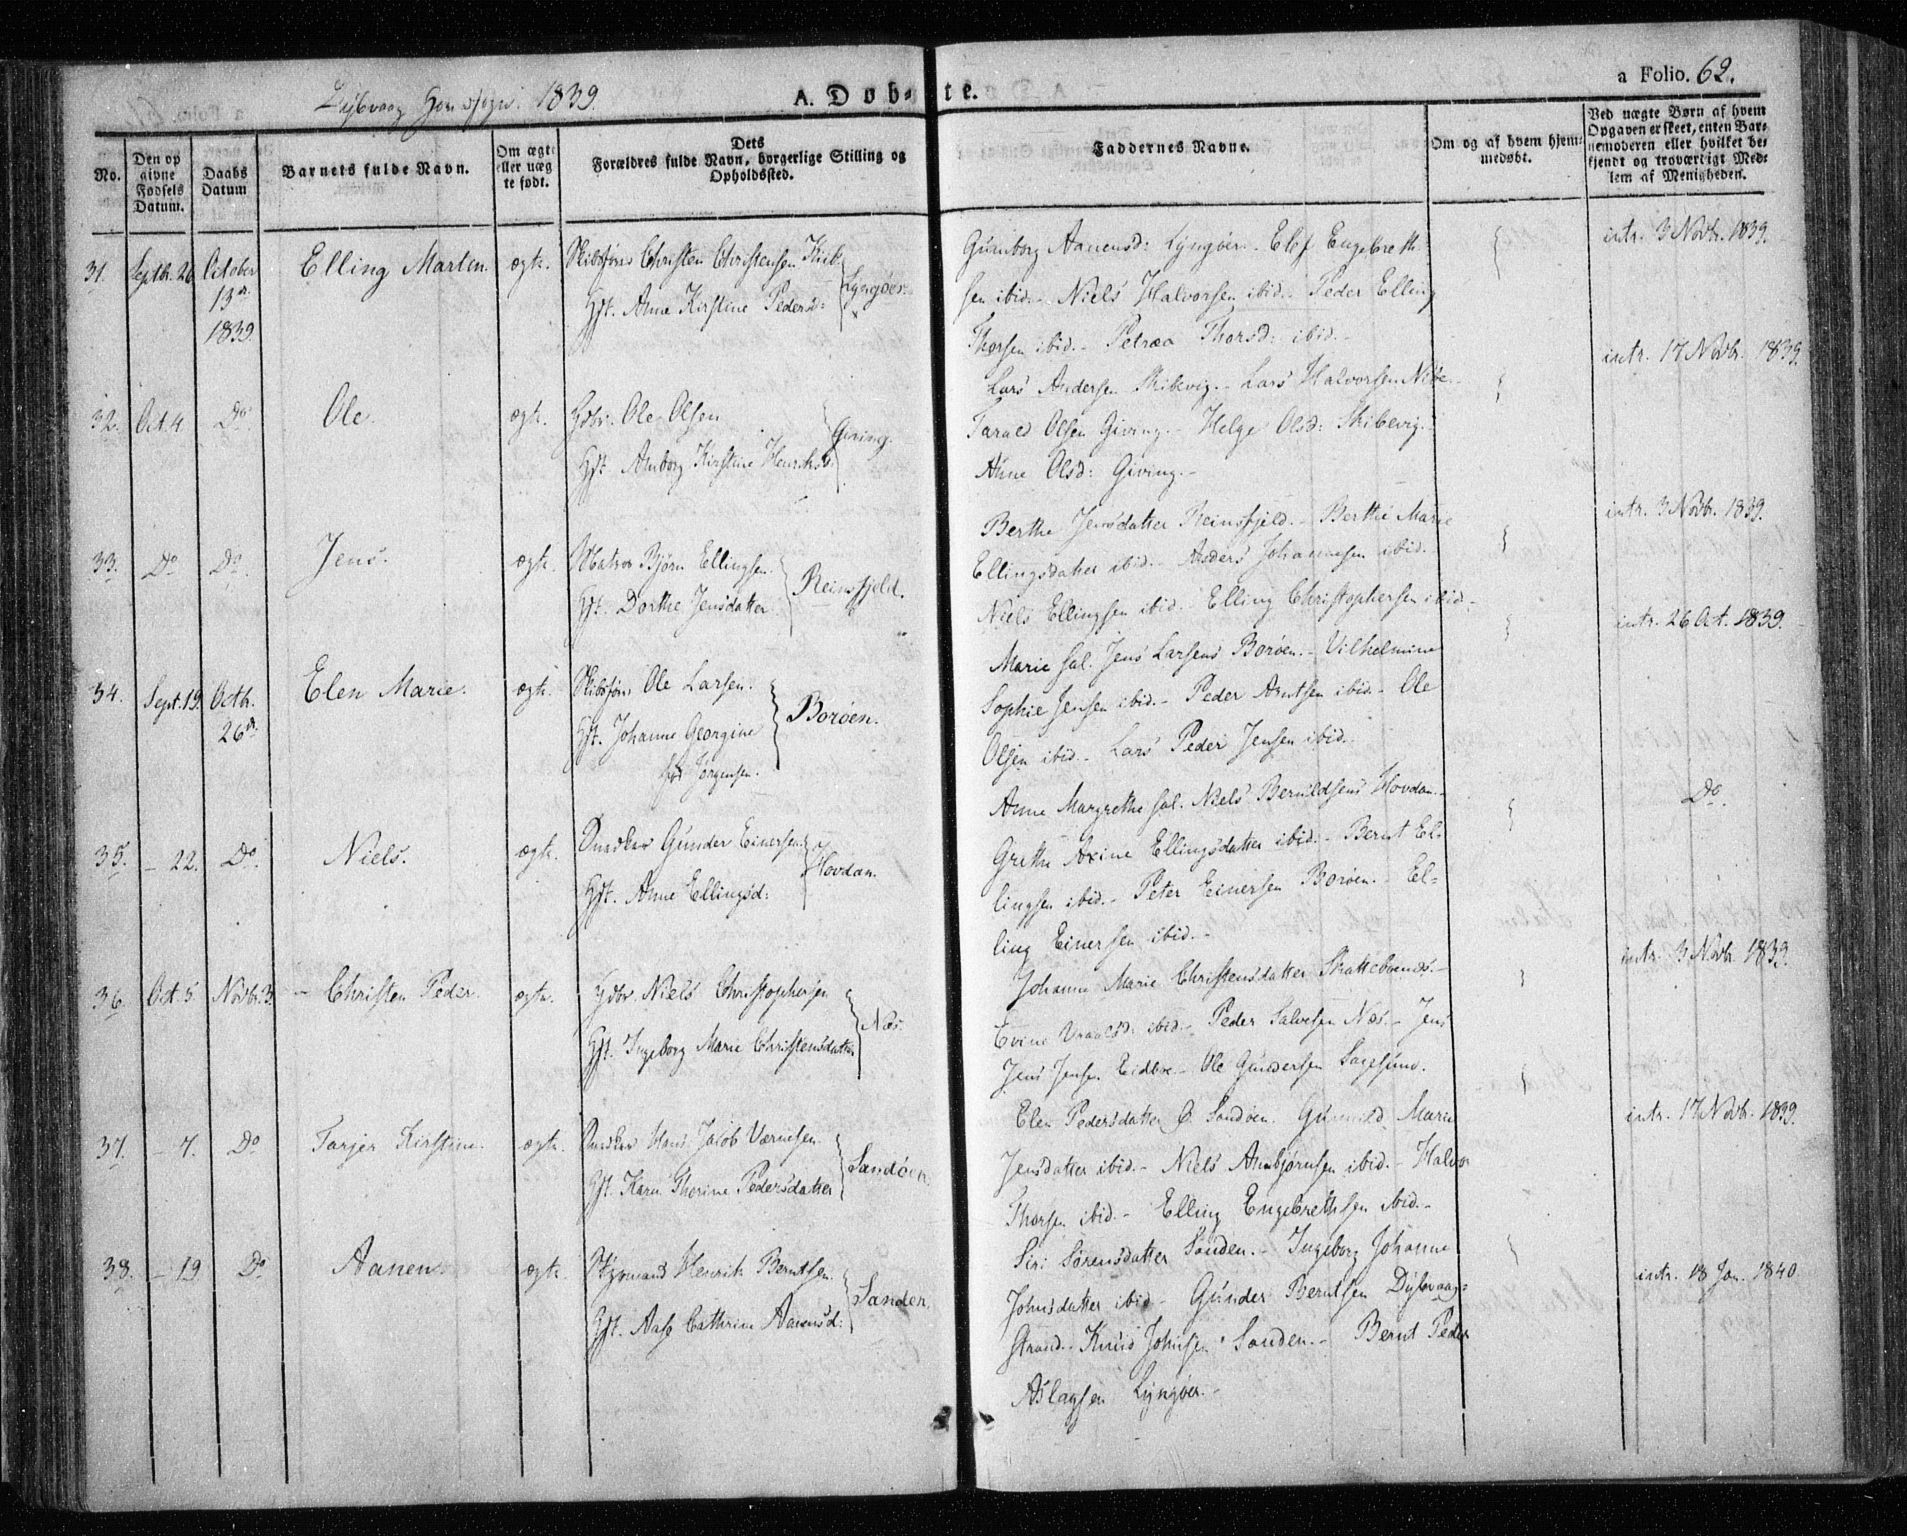 Dybvaag Hovedsogn. 1839.
A. Døb-te.
a Folio. 62.
No.
Den op
givne
Fødsels
Datum.
Daabs
Datum
Barnets fulde Navn.
Om ægte
eller uæg
te født.
Dets
Forældres fulde Navn, borgerlige Stilling og
Opholdssted.
Faddernes Navne.
Om og af hvem hjem-
medøbt.
Ved uægte Børn af hvem
Opgaven er skeet, enten Bar-
nemoderen eller hvilket be-
kjendt og troværdigt Med-
lem af Menigheden.
31. Septb. 26 October
13de
1839.
Elling Marten. ægte.
Skibsføres Christen Christensen
Hst. Anne Kirstine Pedersd:
Lyngøer.
Gunborg Aanensd: Lyngøer. Elef Engebreth-
sen ibid. - Niels Halvorsen ibid. - Peder Elling
Thorsen ibid. - Petræa Thorsd: ibid. -
intr. 3 Novbr. 1839.
32. Oct. 4. Do Ole. ægte.
Gdbr. Ole Olsen
Hst. Amborg Kirstine Henriksd:
Giving.
Lars Andersen Skibevig. - Lars Halvorsen
Tarald Olsen Giving. - Helge Olsd: Skibevig. -
Anne Olsd: Giving. -
intr. 17 Novbr. 1839.
33. Do Do. Jens. ægte.
Matros Bjørn Ellingsen.
Hst. Dorthe Jensdatter
Reinsfjeld.
Berthe Jensdatter Reinsfjeld. - Berthe Marie
Ellingsdatter ibid. - Anders Johannesen ibid.
Niels Ellingsen ibid. Elling Christophersen ibid -
intr. 3 Novbr. 1839.
34. Sept. 19. Octb.
26de
Elen Marie. ægte.
Skibsføres Ole Larsen.
Hst. Johanne Georgine
Jørgensen.
Borøen.
Marie sal. Jens Larsens Borøen. - Vilhelmine
Sophie Jensen ibid. - Peder Arntsen ibid. - Ole
Olsen ibid. - Lars Peder Jensen ibid.
intr. 26 Oct. 1839.
35. - 22. Do. Niels. ægte.
Gunder Einersen
Hst. Anne Ellingsd:
Hovdan.
Anne Margrethe sal. Niels Beruldsens Hovdan. -
Grethe Axine Ellingsdatter ibid. - Bernt El-
lingsen ibid. - Peter Einersen Borøen. - El-
ling Einersen ibid. -
Do.
36. Oct. 5. Novbr. 3. Christen Peder. ægte.
Gdbr Niels Christophersen
Hst. Ingeborg Marie Christensdatter
Næs.
Johanne Marie Christensdatter
Evine ibid. - Peder Salvesen Næs. - Jens
Jens Jensen Eidboe. - Ole Gundersen Sagesund.
intr. 3 Novbr. 1839.
37. - 7. Do Tarjer Kirstine. ægte.
Hans Jacob Værnesen
Hst. Karen Therine Pedersdatter
Sandøen.
Elen Pedersdatter Sandøen. Gunnild Marie
Jensdatter ibid. - Niels Ambjørnsen ibid. - Halvor
Thorsen ibid. - Elling Engebrethsen ibid. -
intr. 17 Novbr. 1839.
38. - 19 Do Aanen. ægte.
Styrmand Henrik Berntsen.
Hst. Aase Cathrine Aanensd:
Sanden.
Siri Sørensdatter Sanden. - Ingeborg Johanne
Johnsdatter ibid - Gunder Berntsen Dybvaag-
strand. - Knud Johnsen Sanden. - Bernt Peder
Aslagsen Lyngøer. -
intr. 18 Jan. 1840